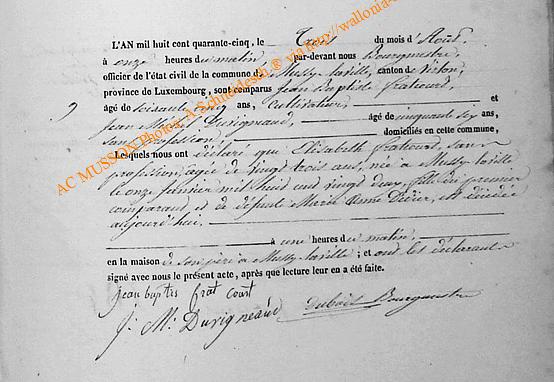 L'AN mil huit cent quarante-cinq, le Trois du mois d'Août,
à onze heures du matin, par-devant nous Bourgmestre
officier de l'état civil de la commune de Mussy-laville, canton de Virton,
province de Luxembourg, sont comparus Jean Baptiste Fratcourt,
âgé de soixante cinq ans, Cultivateur, et
Jean Duvigneaud, âgé de cinquante six ans,
sans profession, domiciliés en cette commune,
Lesquels nous ont déclaré que Elisabeth Fratcourt, sans
profession, agée de vingt trois ans, née a Mussy-laville
le onze Janvier mil huit cent vingt deux, fille du premier
comparant et de défunte Marie Didier, est décédée
aujourd'hui.
à une heures du matin,
en la maison de son père a Mussy-laville; et ont les déclarants
signé avec nous le présent acte, après que lecture leur en a été faite.
jean baptis frat court
J. M. Duvigneaud
Dubois Bourgmestre
AC MUSSON Photos A.Schuredes ® via http://wallonia-